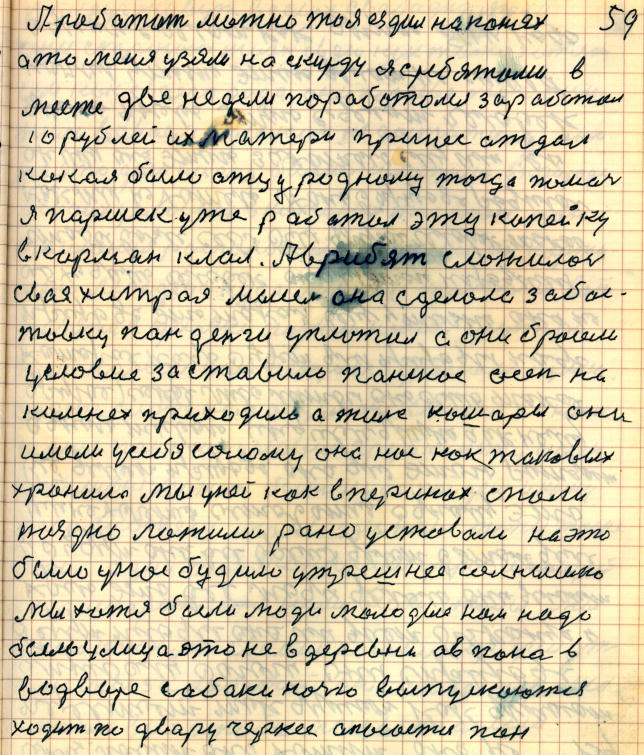 А работат можно тоя ездил на конях 59
а то меня узяли на скирду я с рибятоми в
месте две недели поработоли заработал
10 рублей их матери принес отдал
какая было отцу родному тогда помач
я паршек уже работал эту копейку
в карман клал. А в рибят сложилос
свая хитрая она сделала забас-
товку пан денги уплотил а они бросели
условие заставило панское на
коленех приходили а кошары они
имели у себя солому она нас как таковых
хранила мы у ней как в перинах спали
поздно ложили рано уставали на это
было у нас будило утрешнее солнышко
мы хотя были люди молодые нам надо
было улица это не в деревни а в пана в
водворе собаки ночю выпускаются
ходит по двару черкес пан